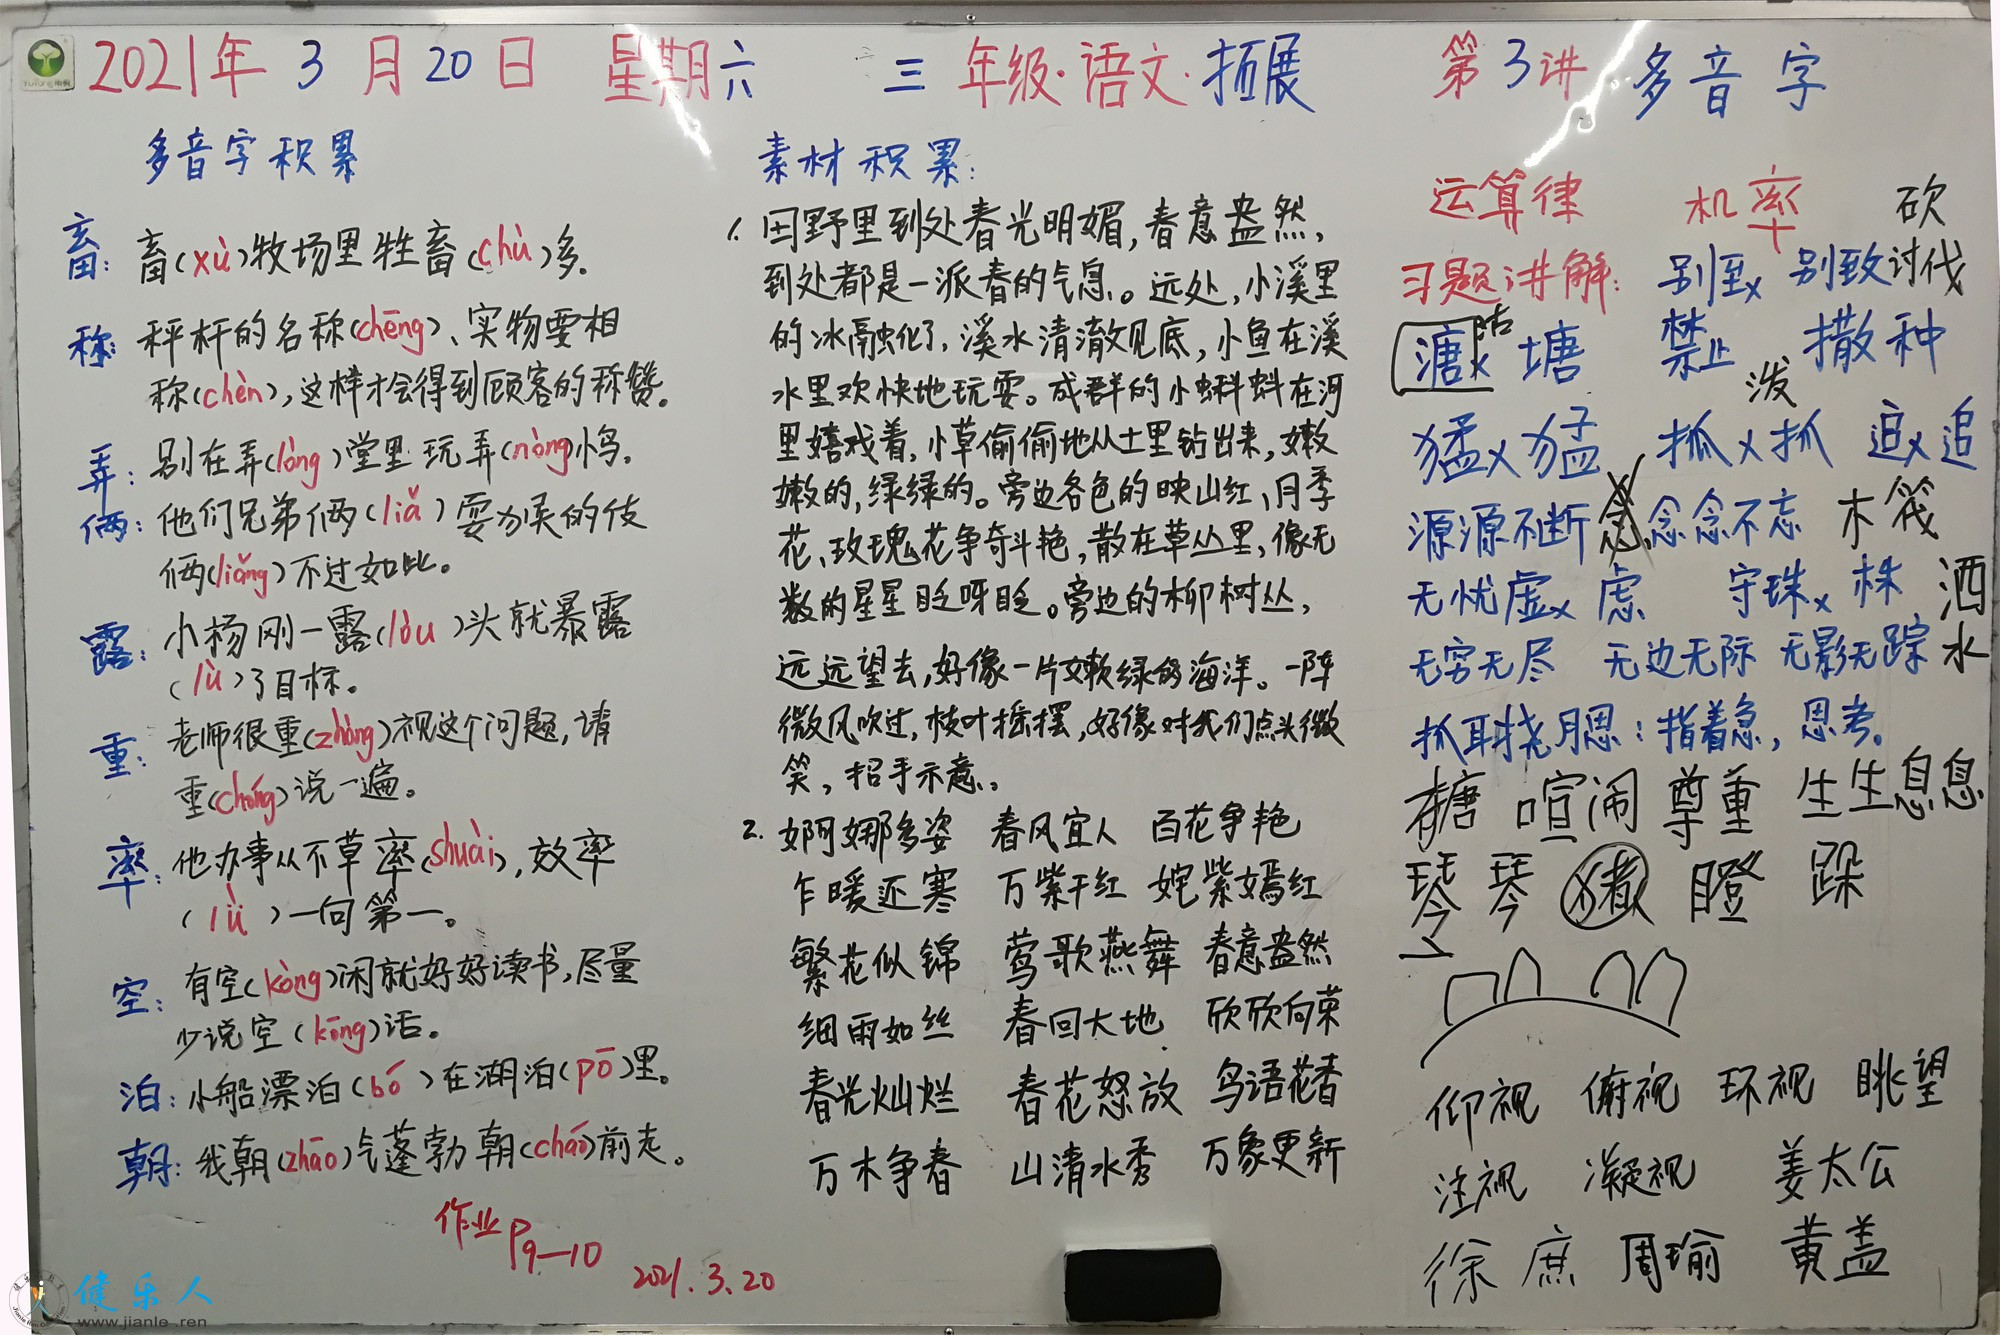 2021年 3 月 20 日 星期六 三 年级·语文·拓展 第3讲 多音字
多音字积累
畜: 畜(xù)牧场里牲畜(chù)多。
称: 秤杆的名称(chēng)、实物要相
称(chèn),这样才会得到顾客的称赞。
弄: 别在弄(lòng)堂里玩弄(nòng)小鸟。
俩: 他们兄弟俩(liǎ)耍为人的伎
俩(liǎng)不过如此。
露: 小杨刚一露(lòu)头就暴露
(lù)了目标。
重: 老师很重(zhòng)视这个问题,请
重(chóng)说一遍。
率: 他办事从不草率(shuài),效率
(lǜ)一向第一。
空: 有空(kòng)闲就好好读书,尽量
少说空(kōng)话。
泊: 小船漂泊(bó)在湖泊(pō)里。
朝: 我朝(zhāo)气蓬勃朝(cháo)前走。
作业 P9—10
2021.3.20
素材积累:
1. 田野里到处春光明媚,春意盎然,
到处都是一派春的气息。远处,小溪里
的冰融化了,溪水清澈见底,小鱼在溪
水里欢快地玩耍。成群的小蝌蚪在河
里嬉戏着,小草偷偷地从土里钻出来,嫩
嫩的,绿绿的。旁边各色的映山红、月季
花、玫瑰花争奇斗艳,散在草丛里,像无
数的星星眨呀眨。旁边的柳树丛,
远远望去,好像一片嫩绿的海洋。一阵
微风吹过,枝叶摇摆,好像对我们点头微
笑,招手示意。
2. 婀娜多姿 春风宜人 百花争艳
乍暖还寒 万紫千红 姹紫嫣红
繁花似锦 莺歌燕舞 春意盎然
细雨如丝 春回大地 欣欣向荣
春光灿烂 春花怒放 鸟语花香
万木争春 山清水秀 万象更新
运算律 机率 砍
习题讲解: 别致x 别致 讨伐
溏x 塘 禁止 撒种
泼
猛x猛 抓x抓 追x追
源源不断 念念不忘 木筏
无忧虚x 虑 守珠x 株 洒
无穷无尽 无边无际 无影无踪 水
抓耳挠腮:指着急,思考。
糖 喧闹 尊重 生生息息
琴 琴 瞪 跺
仰视 俯视 环视 眺望
注视 凝视 姜太公
徐 庶 周瑜 黄盖
健乐人
www.jianle.ren